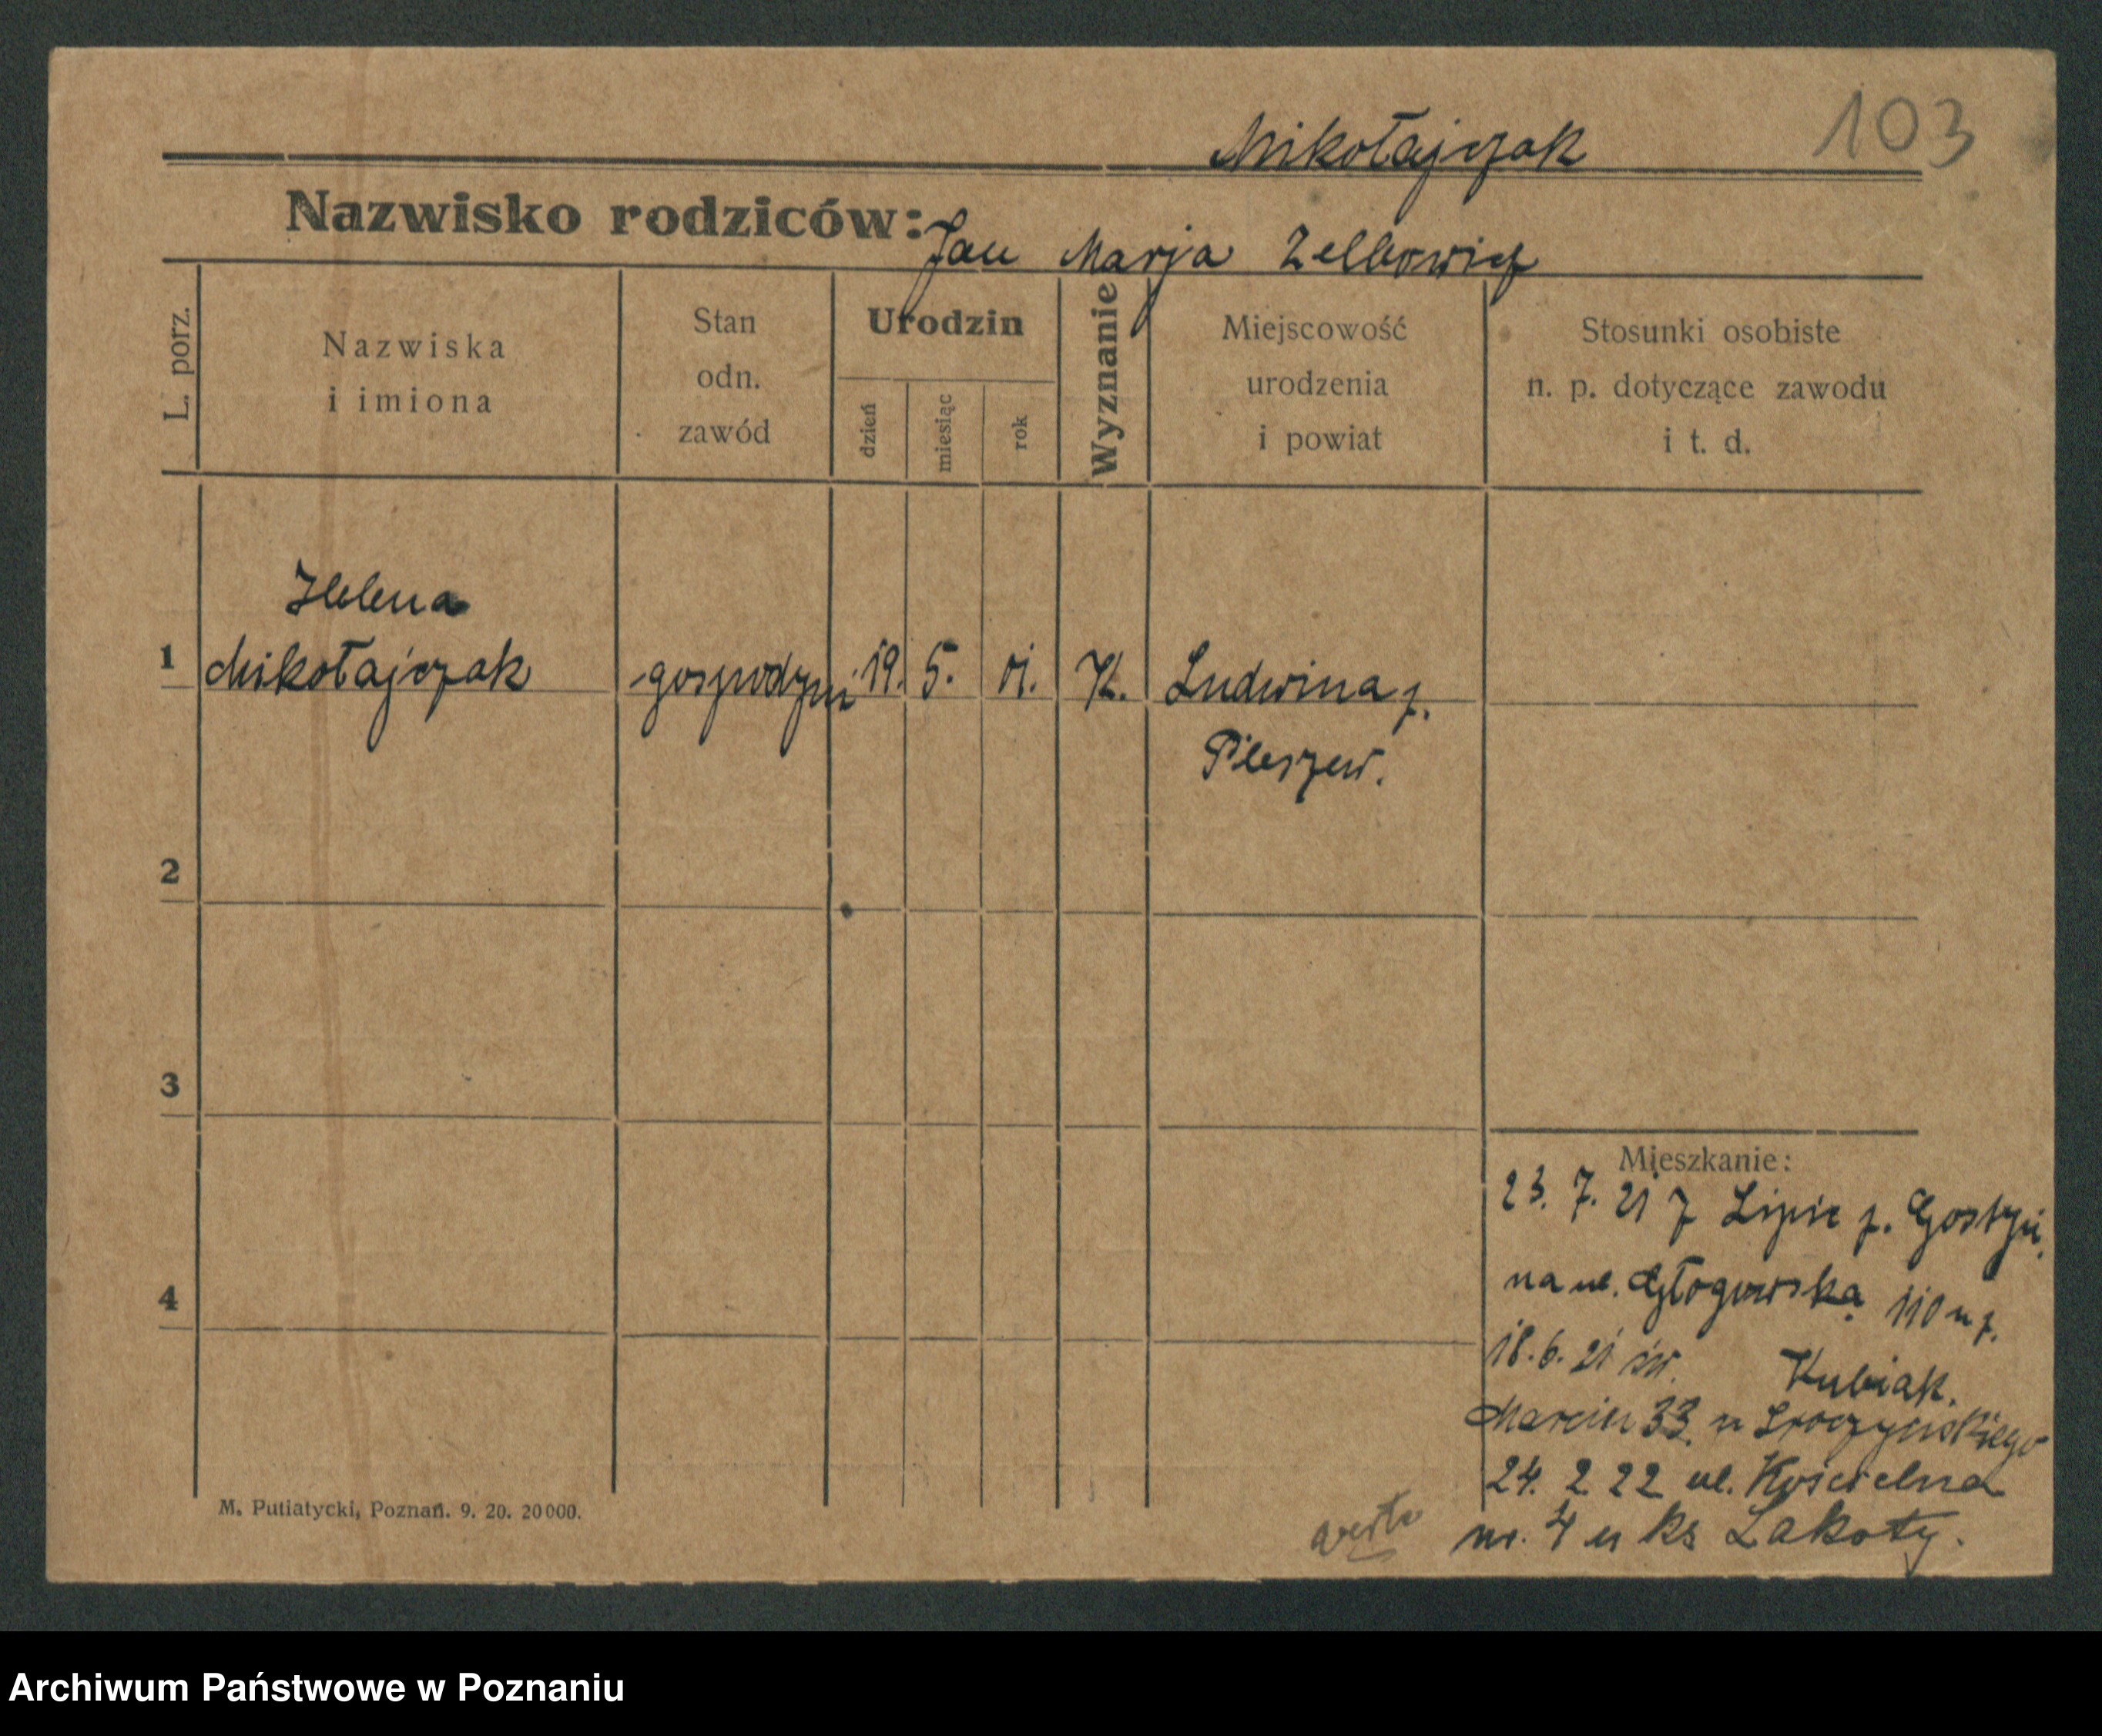 103
Mikołajczak
Nazwisko rodziców: Jan Marja
L. porz.
Nazwiska
i imiona
Stan
odn.
zawód
Urodzin
dzień
miesiąc
rok
Wyznanie
Miejscowość
urodzenia
i powiat
Stosunki osobiste
n. p. dotyczące zawodu
i t. d.
Helena
1 Mikołajczak gospodyni 19. 5. 01. K. Ludwina p.
Pleszew.
2
3
4
Mieszkanie:
23. 7. 21 z Lipie p. Gostyń,
na ul. Głogowską 110 u p.
Kubiak.
18. 6. 21 św.
Marcin 33. u
24. 2 22 ul. Kościelna
nr. 4 u ks Łakoty.
verte
M. Putiatycki, Poznań. 9. 20. 20000.
Archiwum Państwowe w Poznaniu